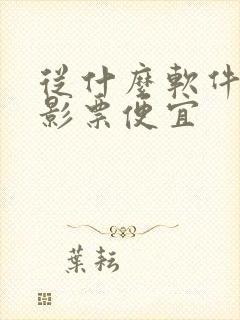 從什麼軟件
影票便宜
葉耘